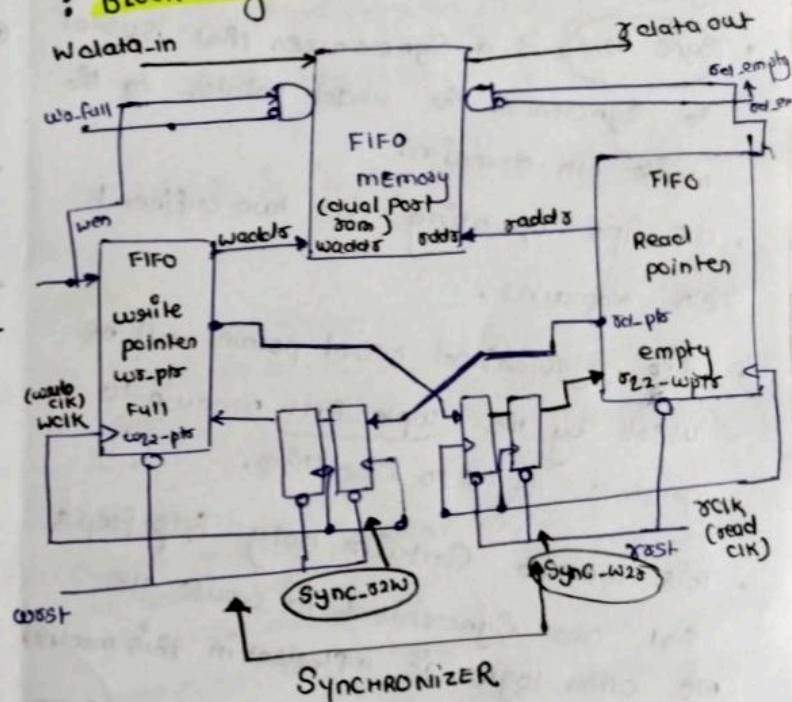 : Block
Wdata_in
rdata out
wo_full
rd_empty
FIFO
memory
(dual port
rom)
waddr
rddr
wen
waddr
raddr
FIFO
write
pointer
wr-ptr
Full
wr2-ptr
(write
clk)
wclk
FIFO
Read
pointer
rd_ptr
empty
r22-wptr
rclk
(read
clk)
rrst
Sync_r2w
Sync_w2r
wrst
SYNCHRONIZER